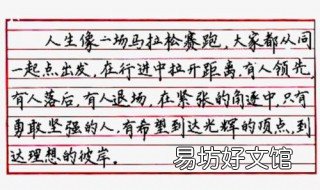 人生像一场马拉松赛跑,大家都从同
一起点出发,在行进中拉开距离,有人领先,
有人落后,有人退场,在紧张的角逐中,只有
勇敢坚强的人,有希望到达光辉的顶点,到
达理想的彼岸。
易坊好文馆